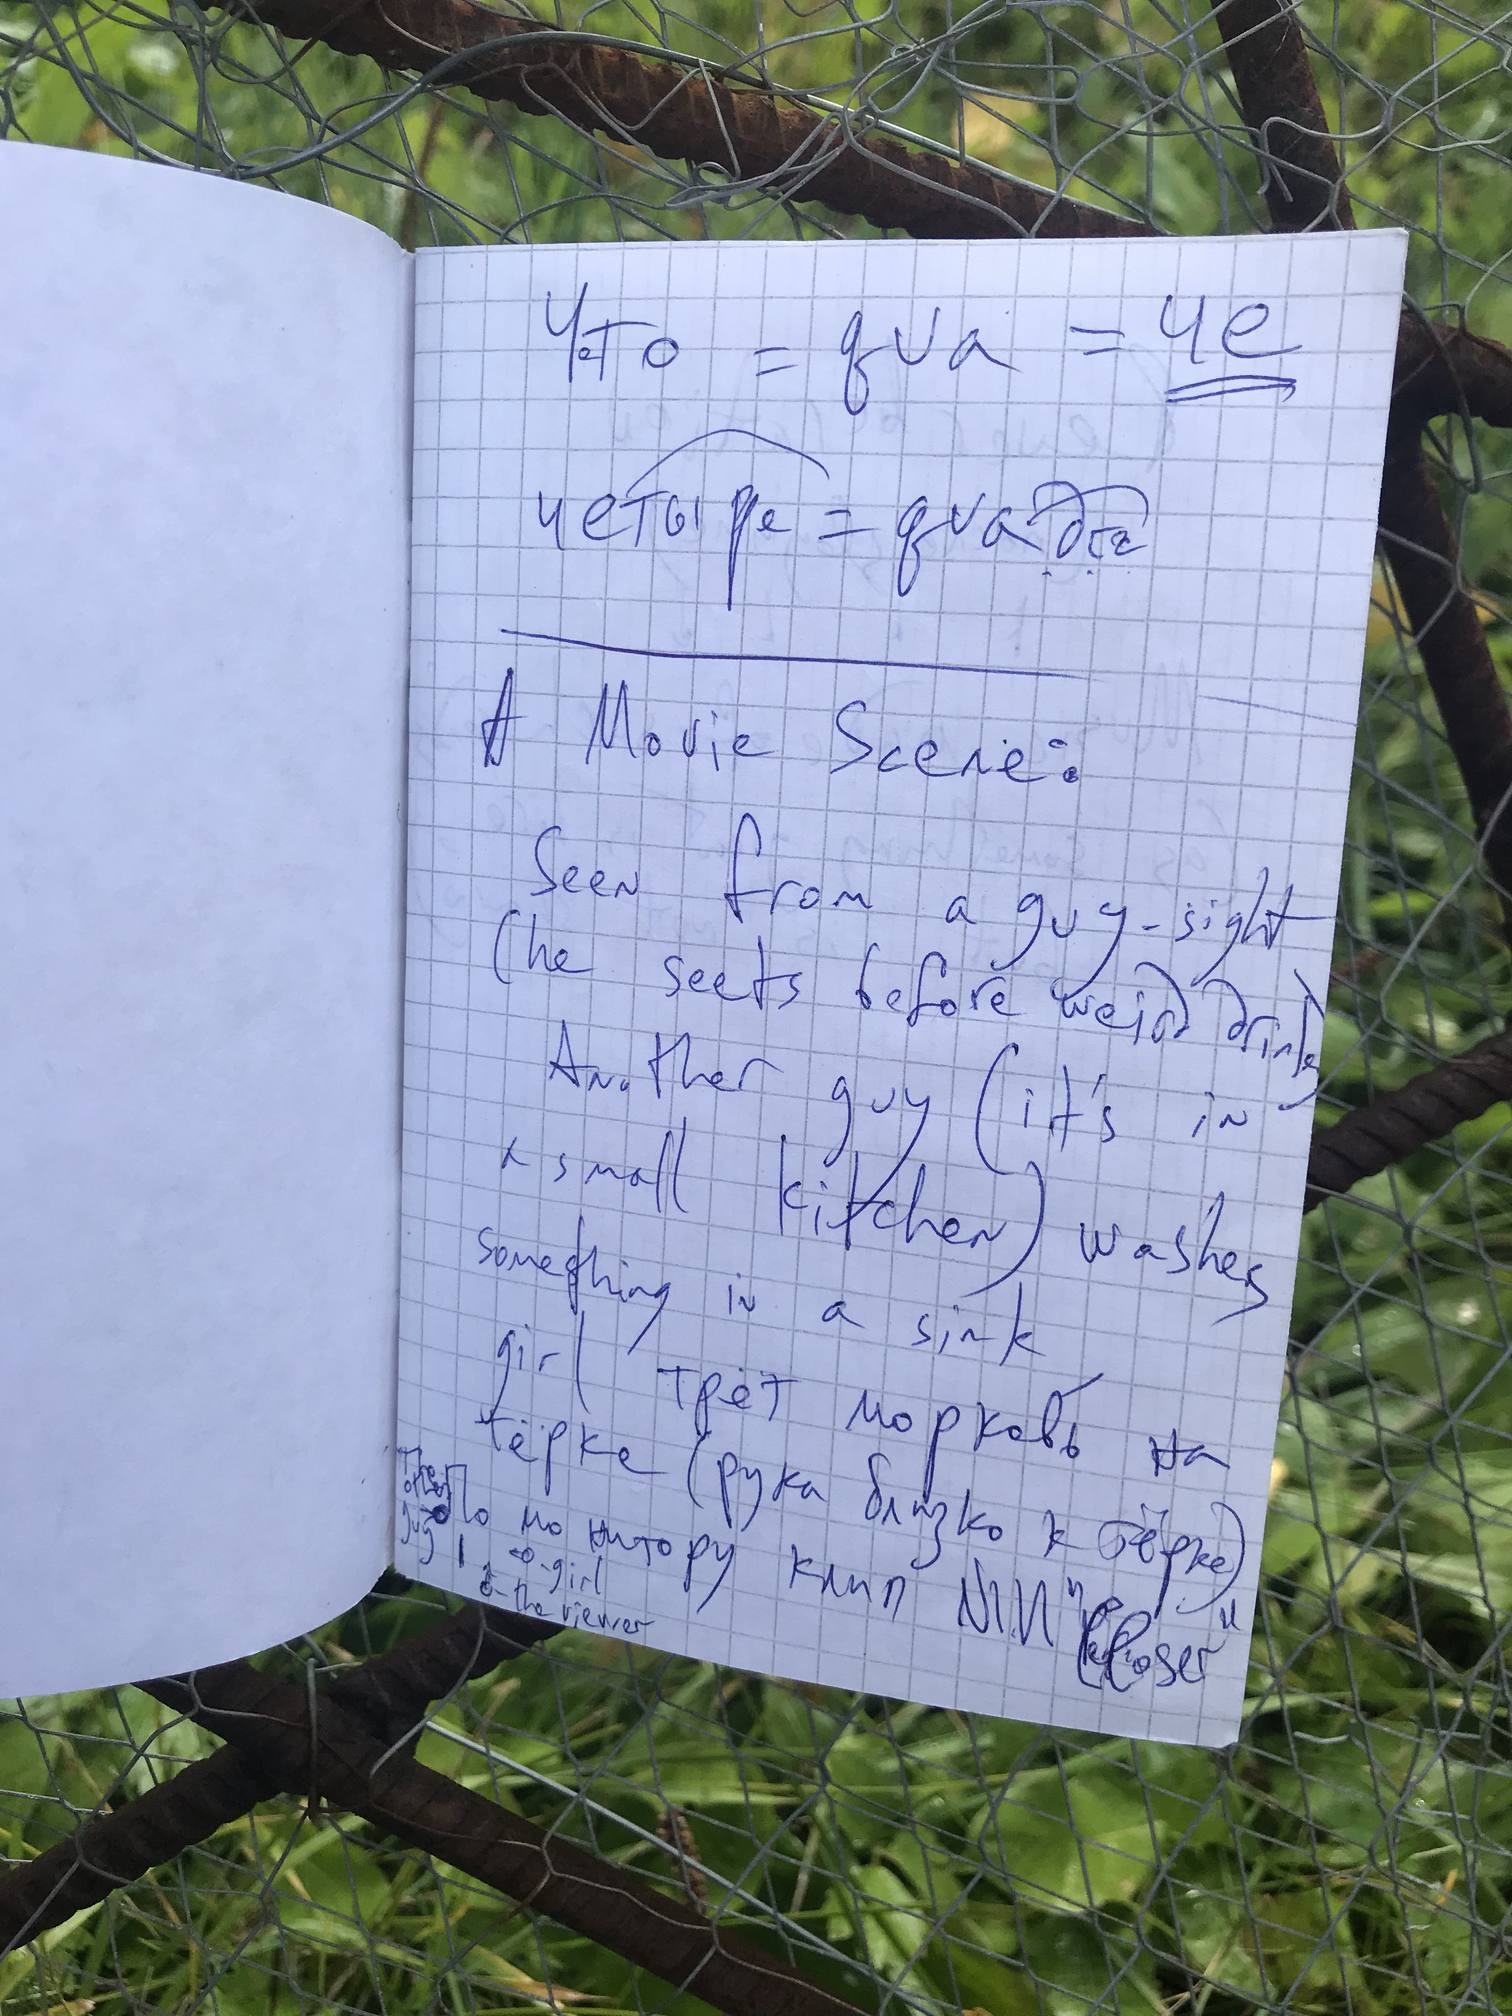 что = qva = че
четыре = qva
A Movie Scene:
Seen from a guy-sight
(he seets before weird drink)
Another guy (it's in
a small kitchen) washes
something in a sink
girl трёт морковь на
тёрке (рука близко к тёрке)
По монитору клип NIN "Closer"
The
other
guy
girl
the viewer